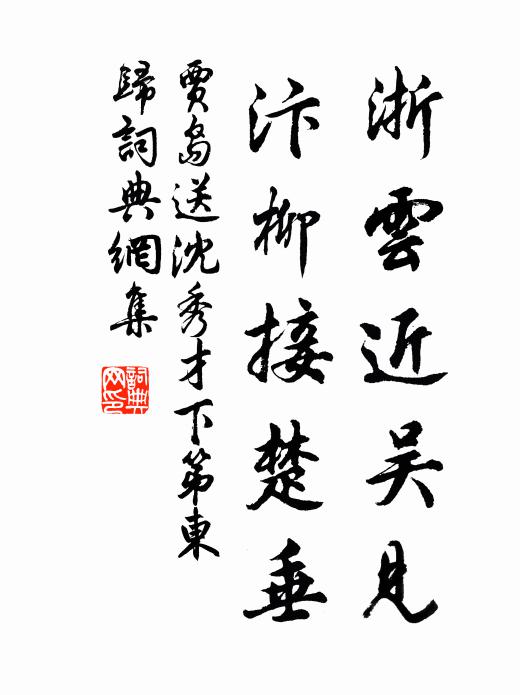 浙雲近吳見
汴柳接楚垂
賈島送沈秀才下第東
歸詞典網集
詞典
网印